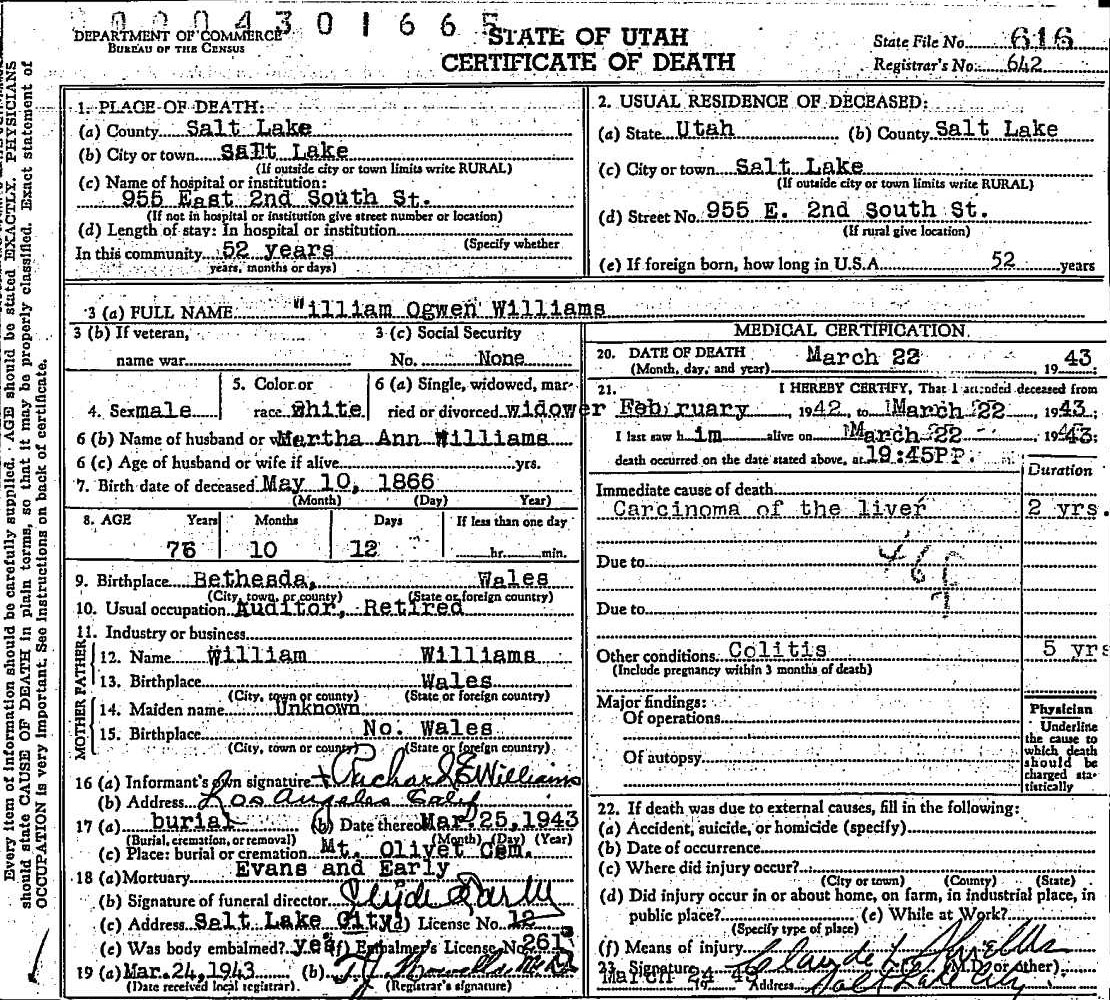 0000430166 5
DEPARTMENT OF COMMERCE
BUREAU OF THE CENSUS
STATE OF UTAH
CERTIFICATE OF DEATH
State File No. 616
Registrar's No. 642
1. PLACE OF DEATH:
(a) County Salt Lake
(b) City or town Salt Lake
(If outside city or town limits write RURAL)
(c) Name of hospital or institution:
955 East 2nd South St.
(If not in hospital or institution give street number or location)
(d) Length of stay: In hospital or institution
(Specify whether
In this community 52 years
years, months or days)
2. USUAL RESIDENCE OF DECEASED:
(a) State Utah (b) County Salt Lake
(c) City or town Salt Lake
(If outside city or town limits write RURAL)
(d) Street No. 955 E. 2nd South St.
(If rural give location)
(e) If foreign born, how long in U.S.A. 52 years
3 (a) FULL NAME "illiam Ogwen Williams
3 (b) If veteran, 3 (c) Social Security
name war No. None
4. Sex male 5. Color or race white 6 (a) Single, widowed, married or divorced widower
6 (b) Name of husband or Martha Ann Williams
6 (c) Age of husband or wife if alive yrs.
7. Birth date of deceased May 10, 1866
(Month) (Day) Year)
8. AGE Years Months Days If less than one day
76 10 12 hr. min.
9. Birthplace Bethesda, Wales
(City, town, or county) (State or foreign country)
10. Usual occupation Auditor, Retired
11. Industry or business
FATHER
12. Name William Williams
13. Birthplace Wales
(City, town or county) (State or foreign country)
MOTHER
14. Maiden name Unknown
15. Birthplace No. Wales
(City, town or county) (State or foreign country)
16 (a) Informant's own signature Richard E Williams
(b) Address Los Angeles Calif
17 (a) burial (b) Date thereof Mar. 25, 1943
(Burial, cremation, or removal) (Month) (Day) (Year)
(c) Place: burial or cremation Mt. Olivet Cem.
18 (a) Mortuary Evans and Early
(b) Signature of funeral director Clyde Early
(c) Address Salt Lake City (d) License No. 12
(e) Was body embalmed? yes (f) Embalmer's License No. 261
19 (a) Mar. 24, 1943 (b) T.J.
(Date received local registrar). (Registrar's signature)
MEDICAL CERTIFICATION
20. DATE OF DEATH March 22 1943
(Month, day, and year)
21. I HEREBY CERTIFY, That I attended deceased from
February, 1942, to March 22, 1943.
I last saw h im alive on March 22 1943;
death occurred on the date stated above, at :45P
Duration
Immediate cause of death
Carcinoma of the liver 2 yrs.
Due to
Due to
Other conditions. Colitis 5 yrs
(Include pregnancy within 3 months of death)
Major findings:
Of operations
Of autopsy
Physician
Underline
the cause to
which death
should be
charged sta-
tistically
22. If death was due to external causes, fill in the following:
(a) Accident, suicide, or homicide (specify)
(b) Date of occurrence
(c) Where did injury occur?
(City or town) (County) (State)
(d) Did injury occur in or about home, on farm, in industrial place, in
public place? (e) While at Work?
(Specify type of place)
(f) Means of injury
23. Signature Claude L (M.D. or other).
March 24 43 19 Address Salt Lake City
Every item of information should be carefully supplied. AGE should be stated EXACTLY. PHYSICIANS
should state CAUSE OF DEATH in plain terms, so that it may be properly classified. Exact statement of
OCCUPATION is very important. See instructions on back of certificate.